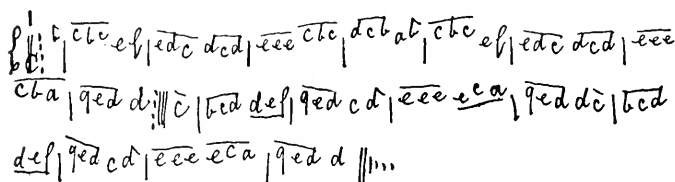 c | cbc ef | edc dcd | eee cbc | dcb ab | cbc ef | edc dcd | eee
cba | ged d :||| c | bcd def | ged cd | eee eca | ged dc | bcd
def | ged cd | eee eca | ged d |||